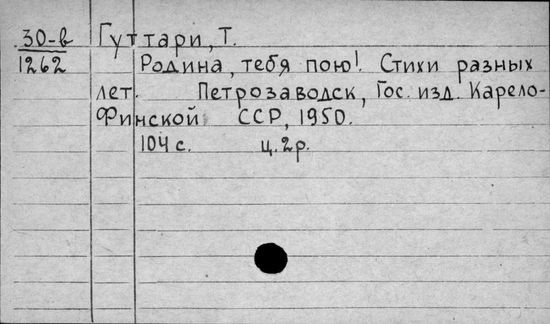 30-в Гуттари, Т.
1262 Родина, тебя пою! Стихи разных
лет. Петрозаводск, Гос. изд. Карело-
Финской ССР, 1950.
104 с. ц. 2 р.